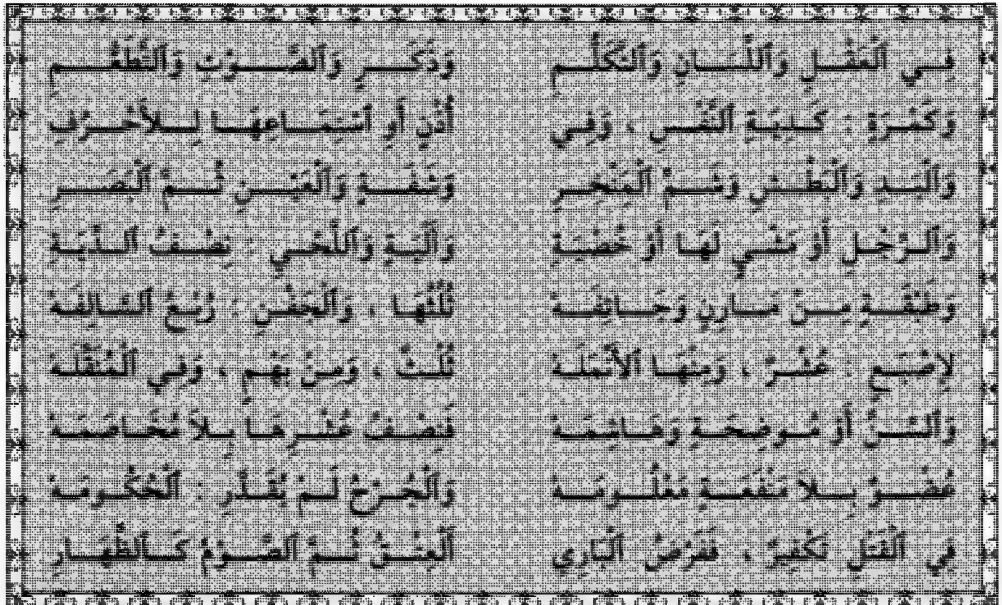 فِي ٱلْعَقْلِ وَٱللِّسَانِ وَٱلتَّكَلُّمِ وَذَكَرٍ وَٱلصَّوْتِ وَٱلتَّطَعُّمِ
وَكَمْرَةٍ : كَدِيَةِ ٱلنَّفْسِ ، وَفِي أُذْنٍ أَوِ ٱسْتِمَاعِهَا لِلأَحْرُفِ
وَٱلْيَدِ وَٱلْبَطْشِ وَشَمِّ ٱلْمِنْخِرِ وَشَفَةٍ وَٱلْعَيْنِ ثُمَّ ٱلْبَصَرِ
وَٱلرِّجْلِ أَوْ مَشْيٍ لَهَا أَوْ خُصْيَةِ وَأَلْيَةٍ وَٱللَّحْيِ : نِصْفُ ٱلدِّيَةِ
وَطَبْقَةٍ مِنْ مَارِنٍ وَجَائِفَهْ ثُلْثُهَا ، وَٱلْجَفْنِ : رُبْعُ ٱلسَّالِفَهْ
لِإِصْبَعٍ : عُشْرٌ ، وَمِنْهَا ٱلأَنْمَلَهْ ثُلْثٌ ، وَمِنْ بَهْمٍ ، وَفِي ٱلْمُنَقِّلَهْ
وَٱلسِّنِّ أَوْ مُوضِحَةٍ وَهَاشِمَهْ فَنِصْفُ عُشْرِهَا بِلاَ مُخَاصَمَهْ
عُضْوٌ بِلاَ مَنْفَعَةٍ مَعْلُومَهْ وَٱلْجُرْحُ لَمْ يُقَدَّرِ : ٱلْحُكُومَهْ
فِي ٱلْقَتْلِ تَكْفِيرٌ ، فَفَرْضُ ٱلْبَارِي ٱلْعِتْقُ ثُمَّ ٱلصَّوْمُ كَٱلظِّهَارِ